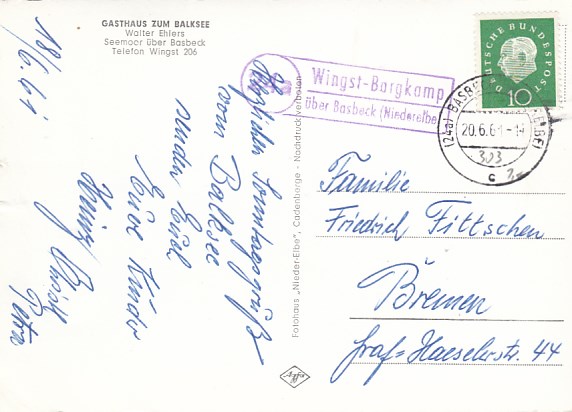 GASTHAUS ZUM BALKSEE
Walter Ehlers
Seemoor über Basbeck
Telefon Wingst 206
18/6.61
vom Balksee
senden Euch
Eure Kinder
Heinz
Petra
Fotohaus „Nieder-Elbe", Cadenberge - Nachdruck verboten
Agfa
Wingst-Bargkamp
über Basbeck (Niederelbe)
DEUTSCHE BUNDESPOST
10
(24a) BASBECK
20.6.61
c
323
Familie
Friedrich Fittschen
Bremen
Graf=Haeseler-str. 44